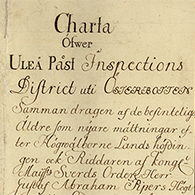 Charta
Öfwer
Uleå Påst Inspections
District uti Österbotten
Summan dragen af de befinteliga
Äldre som nÿare mättningar ef
ter Högwälborne Lands höfdin
gen och Riddaren af Kongl
Maÿts Swerds Orden Herr
Gustaf Abraham Pipers